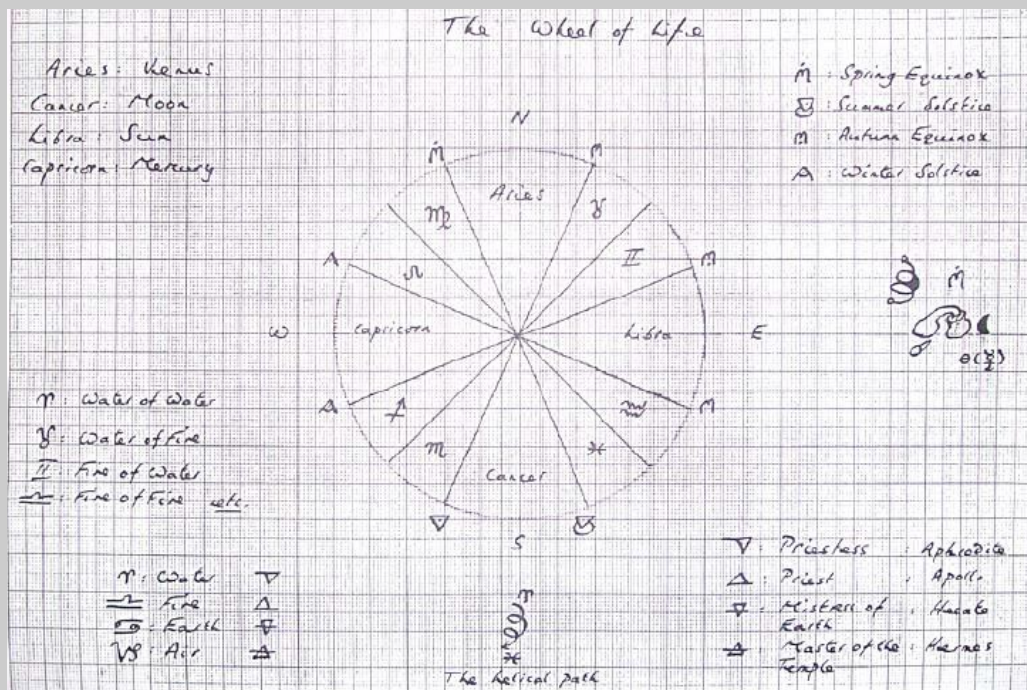 The Wheel of Life
Aries : Venus
Cancer : Moon
Libra : Sun
Capricorn : Mercury
ṁ : Spring Equinox
: Summer Solstice
m : Autumn Equinox
A : Winter Solstice
N
ṁ
m
Aries
♍
♉
♊
A
m
♌
ṁ
W
Capricorn
Libra
E
A
♐
♒
m
♏
♓
Cancer
S
♈ : Water of Water
♉ : Water of Fire
♊ : Fire of Water
♎ : Fire of Fire etc.
♈ : Water
♎ : Fire
♋ : Earth
♑ : Air
♈
♓
The helical path
: Priestess : Aphrodite
△ : Priest : Apollo
: Mistress of Earth : Hecate
: Master of the Temple : Hermes